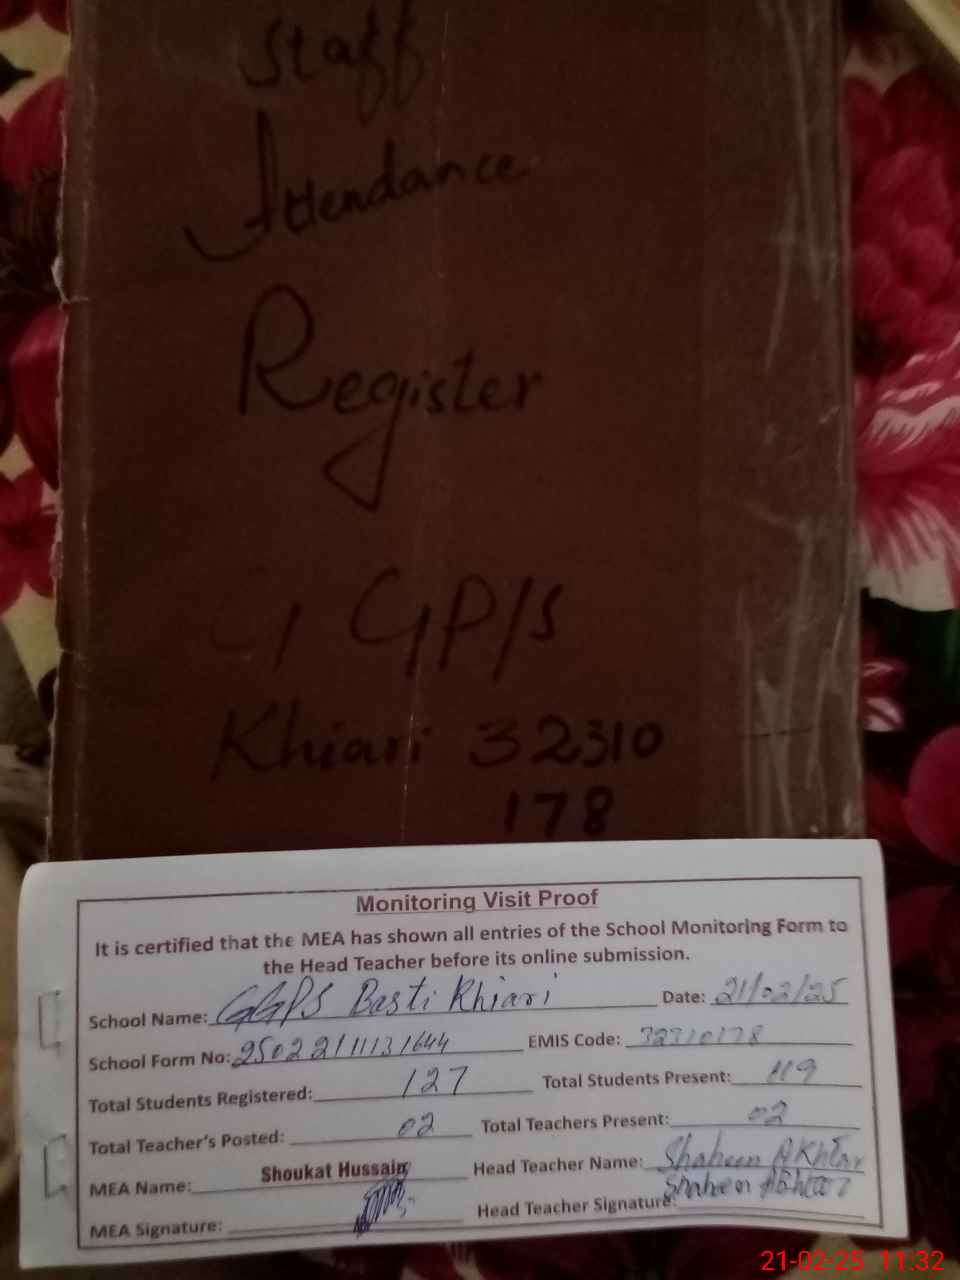 Staff
Attendance
Register
G GP/S
Khiari 32310
178
Monitoring Visit Proof
It is certified that the MEA has shown all entries of the School Monitoring Form to
the Head Teacher before its online submission.
School Name: GGPS Basti Khiari Date: 21/02/25
School Form No: EMIS Code: 32310178
Total Students Registered: 127 Total Students Present: 119
Total Teacher's Posted: 02 Total Teachers Present: 02
MEA Name: Shoukat Hussain Head Teacher Name: Shaheen AKhtar
MEA Signature: Head Teacher Signature: Shaheen Akhtar
21-02-25 11:32